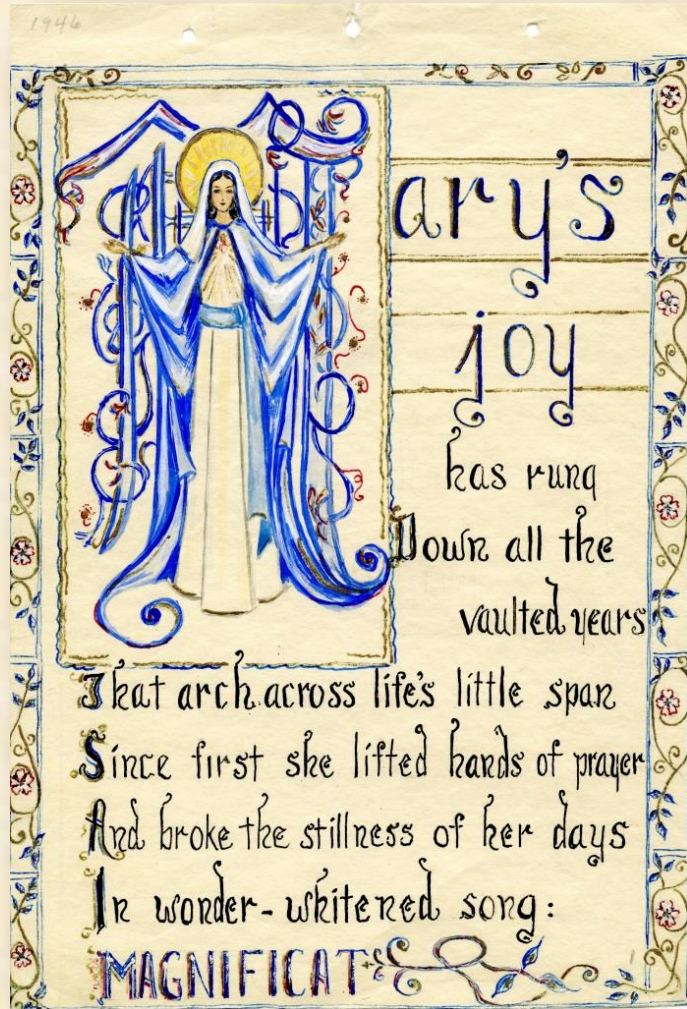 1946
Mary's
joy
has rung
Down all the
vaulted years
That arch across life's little span
Since first she lifted hands of prayer
And broke the stillness of her days
In wonder-whitened song:
MAGNIFICAT